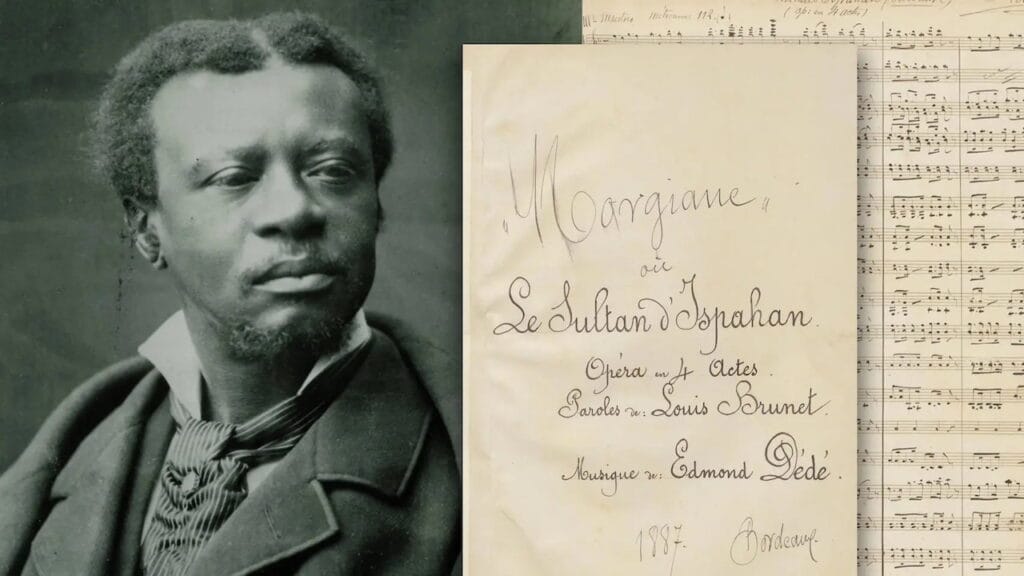 „Morgiane„
où
Le Sultan d'Ispahan.
Opéra en 4 Actes.
Paroles de: Louis Brunet.
Musique de: Edmond Dédé.
1887. Bordeaux.
(Opéra en 4 actes)